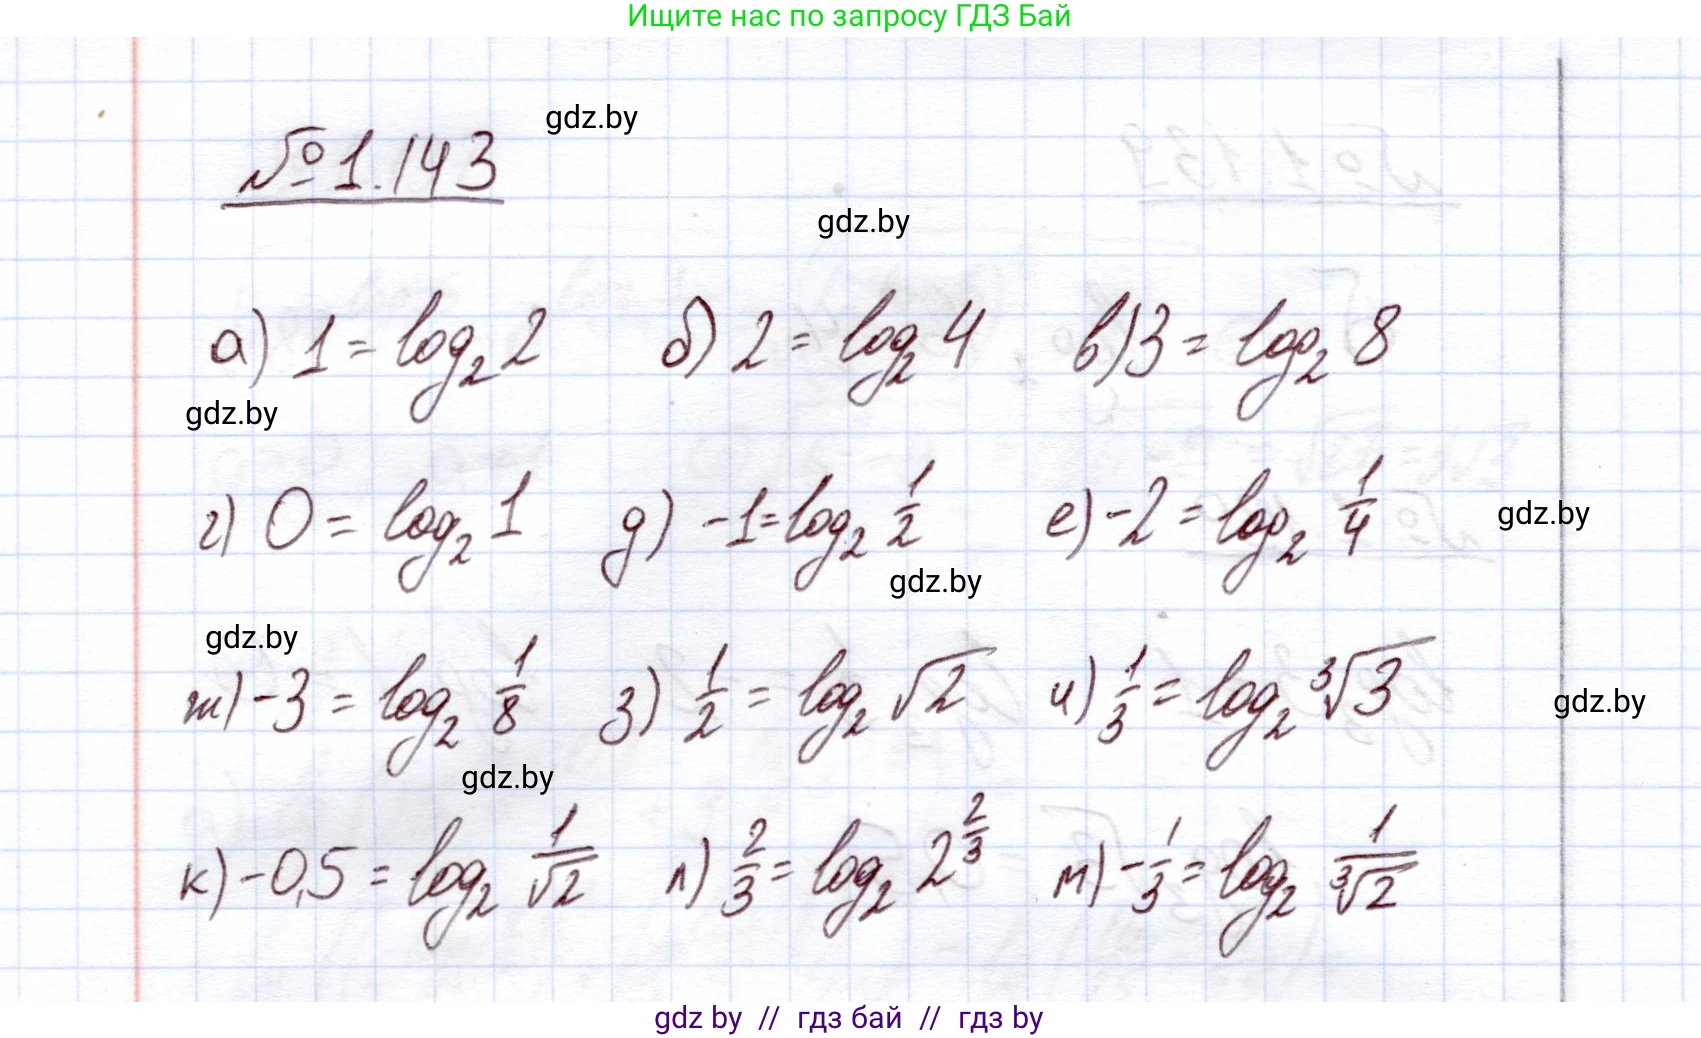 Ищите нас по запросу ГДЗ Бай
gdz.by
№1.143
gdz.by
а) 1 = log₂ 2 б) 2 = log₂ 4 в) 3 = log₂ 8
gdz.by
г) 0 = log₂ 1 д) -1 = log₂ 1/2 е) -2 = log₂ 1/4
gdz.by
gdz.by
gdz.by
ж) -3 = log₂ 1/8 з) 1/2 = log₂ √2 и) 1/3 = log₂ ³√3
gdz.by
gdz.by
к) -0,5 = log₂ 1/√2 л) 2/3 = log₂ 2^(2/3) м) -1/3 = log₂ 1/³√2
gdz by // гдз бай // гдз by